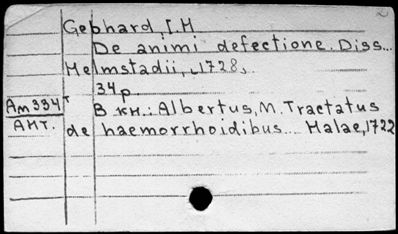 Gebhard, I. H
De animi defectione. Diss...
Helmstadii, 1728,
34 p.
Ам 334т
АКТ.
В кн.: Albertus, M. Tractatus
de haemorrhoidibus... Halae, 1722